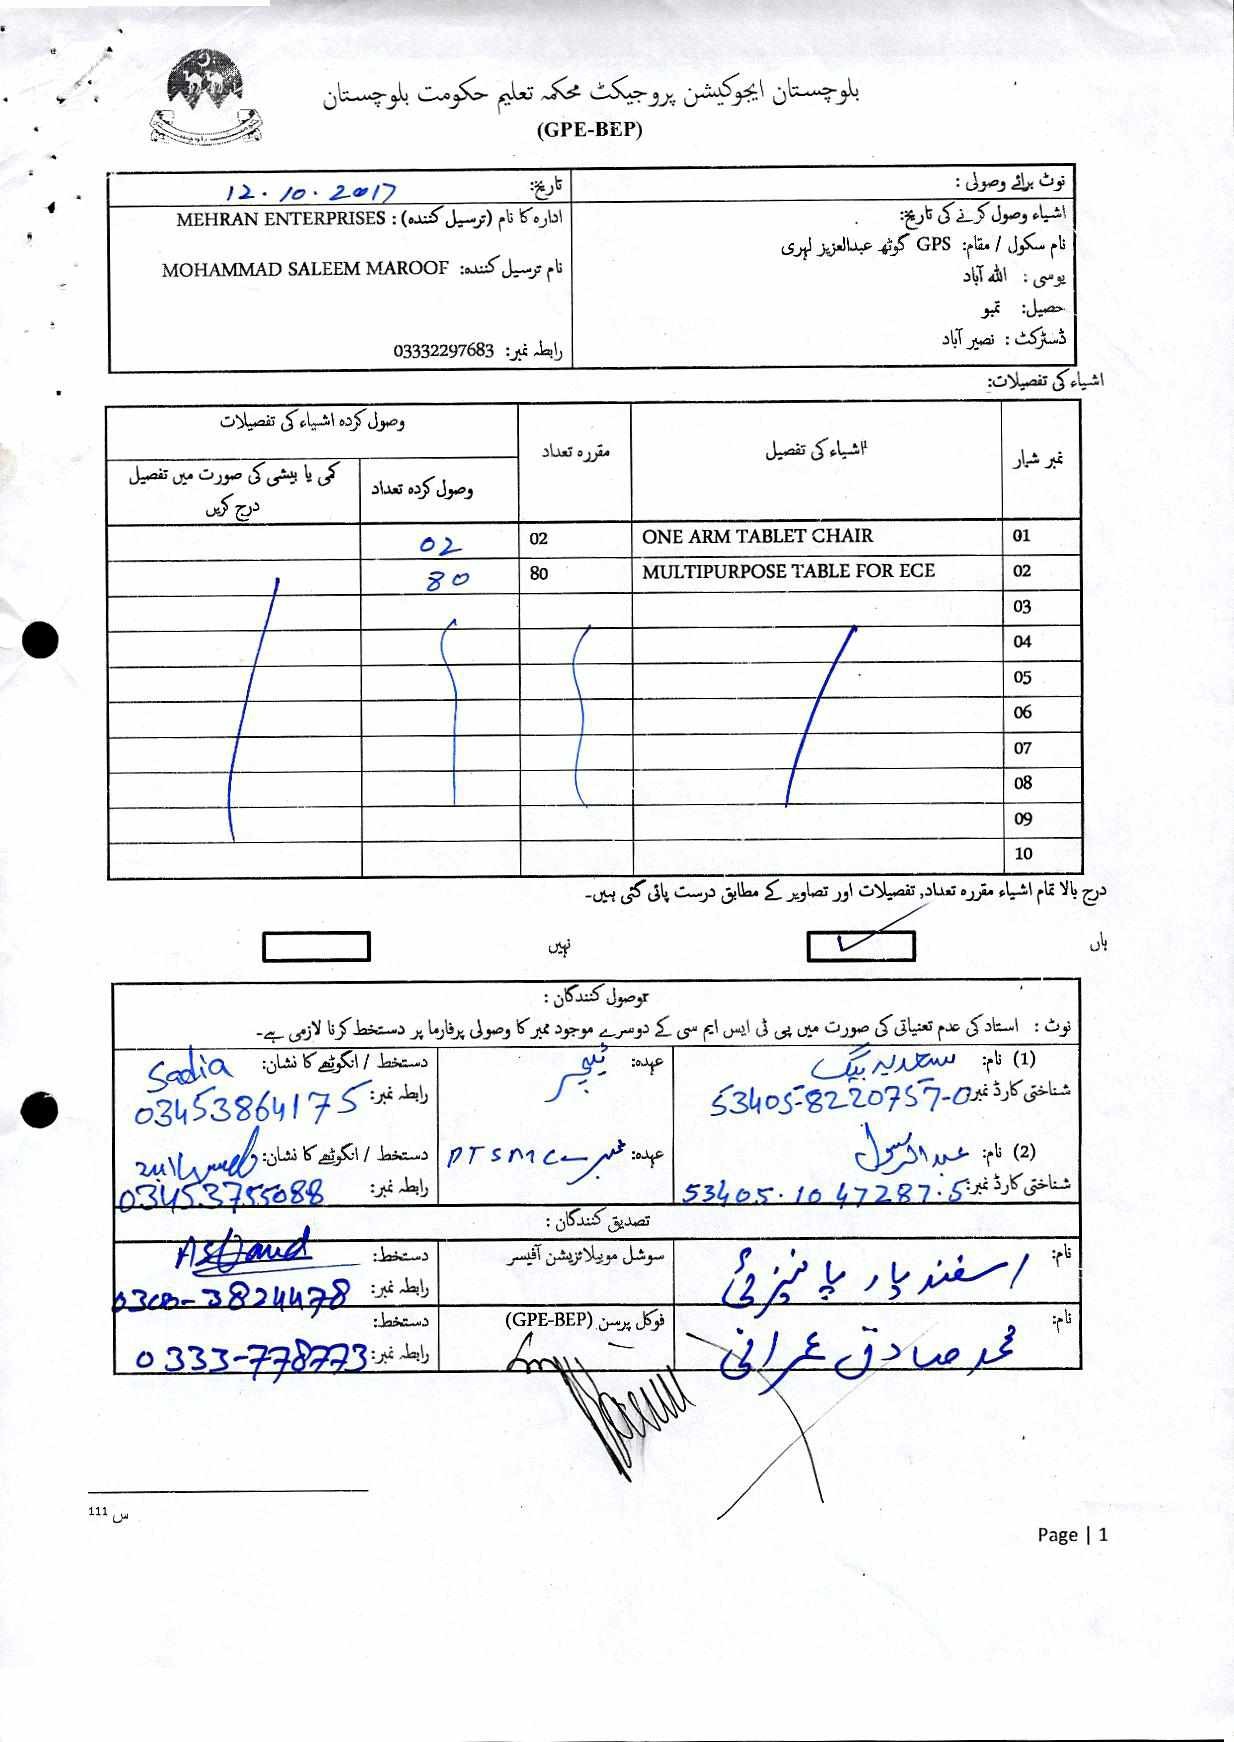 بلوچستان ایجوکیشن پروجیکٹ محکمہ تعلیم حکومت بلوچستان
(GPE-BEP)
نوٹ برائے وصولی :
تاریخ: 12.10.2017
اشیاء وصول کرنے کی تاریخ:
ادارہ کا نام (ترسیل کنندہ) : MEHRAN ENTERPRISES
نام سکول / مقام: GPS گوٹھ عبدالعزیز لہری
نام ترسیل کنندہ: MOHAMMAD SALEEM MAROOF
یوسی : اللہ آباد
حصیل: تمبو
ڈسٹرکٹ : نصیر آباد
رابطہ نمبر: 03332297683
اشیاء کی تفصیلات:
نمبر شمار اشیاء کی تفصیل مقررہ تعداد وصول کردہ اشیاء کی تفصیلات
وصول کردہ تعداد کمی یا بیشی کی صورت میں تفصیل درج کریں
01 ONE ARM TABLET CHAIR 02 02
02 MULTIPURPOSE TABLE FOR ECE 80 80
03
04
05
06
07
08
09
10
درج بالا تمام اشیاء مقررہ تعداد, تفصیلات اور تصاویر کے مطابق درست پائی گئی ہیں۔
ہاں نہیں
وصول کنندگان :
نوٹ : استاد کی عدم تعنیاتی کی صورت میں پی ٹی ایس ایم سی کے دوسرے موجود ممبر کا وصولی پرفارما پر دستخط کرنا لازمی ہے۔
(1) نام: سعدیہ بیگ عہدہ: ٹیچر دستخط / انگوٹھے کا نشان: Sadia
شناختی کارڈ نمبر: 53405-8220757-0 رابطہ نمبر: 03453864175
(2) نام: عبدالرسول عہدہ: PTSMC ممبر دستخط / انگوٹھے کا نشان:
شناختی کارڈ نمبر: 53405.1047287.5 رابطہ نمبر: 03453755088
تصدیق کنندگان :
نام: اسفند یار پانیزئی سوشل موبیلائزیشن آفیسر دستخط:
رابطہ نمبر: 0300-3824478
نام: محمد صادق عمرانی فوکل پرسن (GPE-BEP) دستخط:
رابطہ نمبر: 0333-778773
س 111
Page | 1